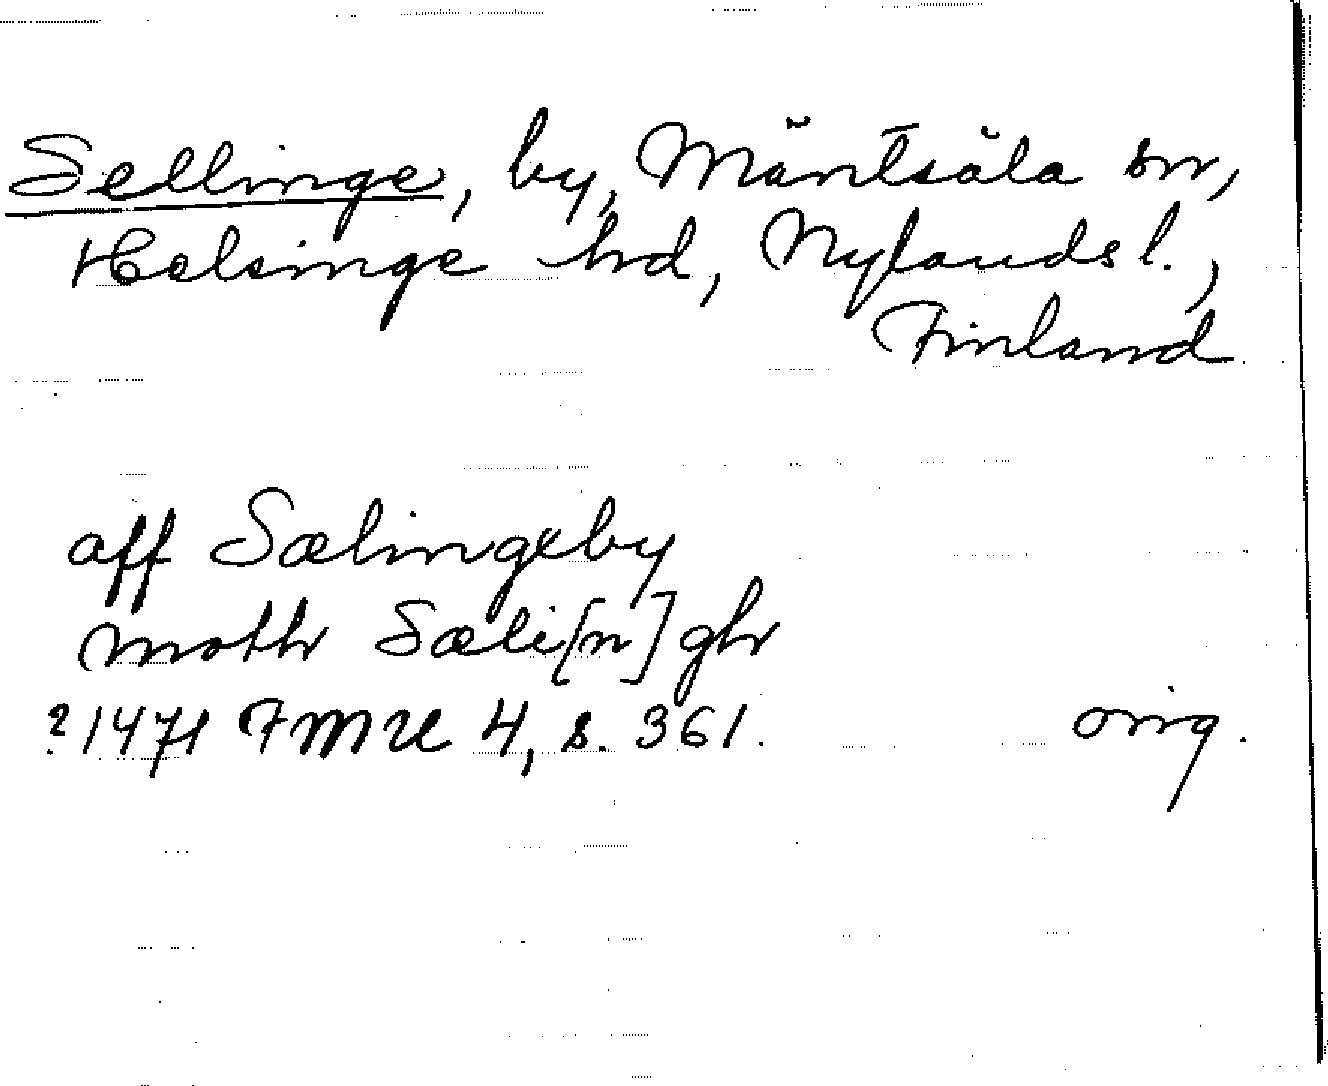 Sellinge, by, Mäntsälä sn,
Helsinge hd, Nylands l.,
Finland
aff Sælingeby
moth Sæli[n]ghr
?1471 FMU 4, s. 361. orig.